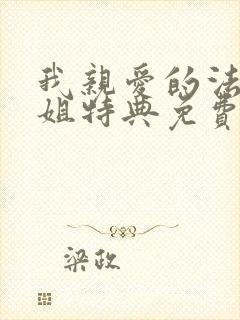 我親愛的法
姐特典免費
梁政